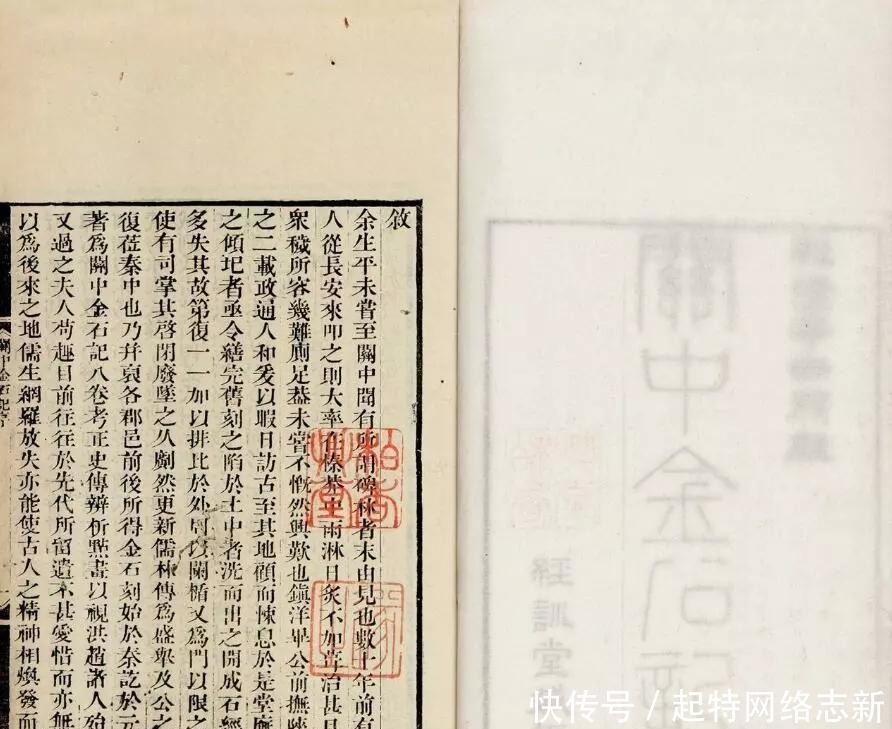 關中金石記
經訓堂
敘
余生平未嘗至關中聞有所謂碑林者末由見也數十年前有
人從長安來叩之則大率在榛莽中雨淋日炙不加葺治甚且
衆穢所容幾難廁足葢未嘗不慨然興歎也鎭洋畢公前撫陝
之二載政通人和爰以暇日訪古至其地顧而悚息於是堂廡
之傾圮者亟令繕完舊刻之陷於土中者洗而出之開成石經
多失其故第復一一加以排比於外周以闌楯又爲門以限之
使有司掌其啓閉廢墜之久劃然更新儒林傳爲盛舉及公之
復莅秦中也乃幷裒各郡邑前後所得金石刻始於秦訖於元
著爲關中金石記八卷考正史傳辨析點畫以視洪趙諸人殆
又過之夫人苟趣目前往往於先代所留遺不甚愛惜而亦無
以爲後來之地儒生網羅放失亦能使古人之精神相煥發而
關中金石記序
快传号／起特网络志新